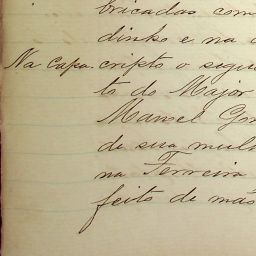 bricadas com
dinho e na
Na Capa. cripto o segui
to do Major
Manoel Gon
de sua mulh
na Ferreira
feito de mão